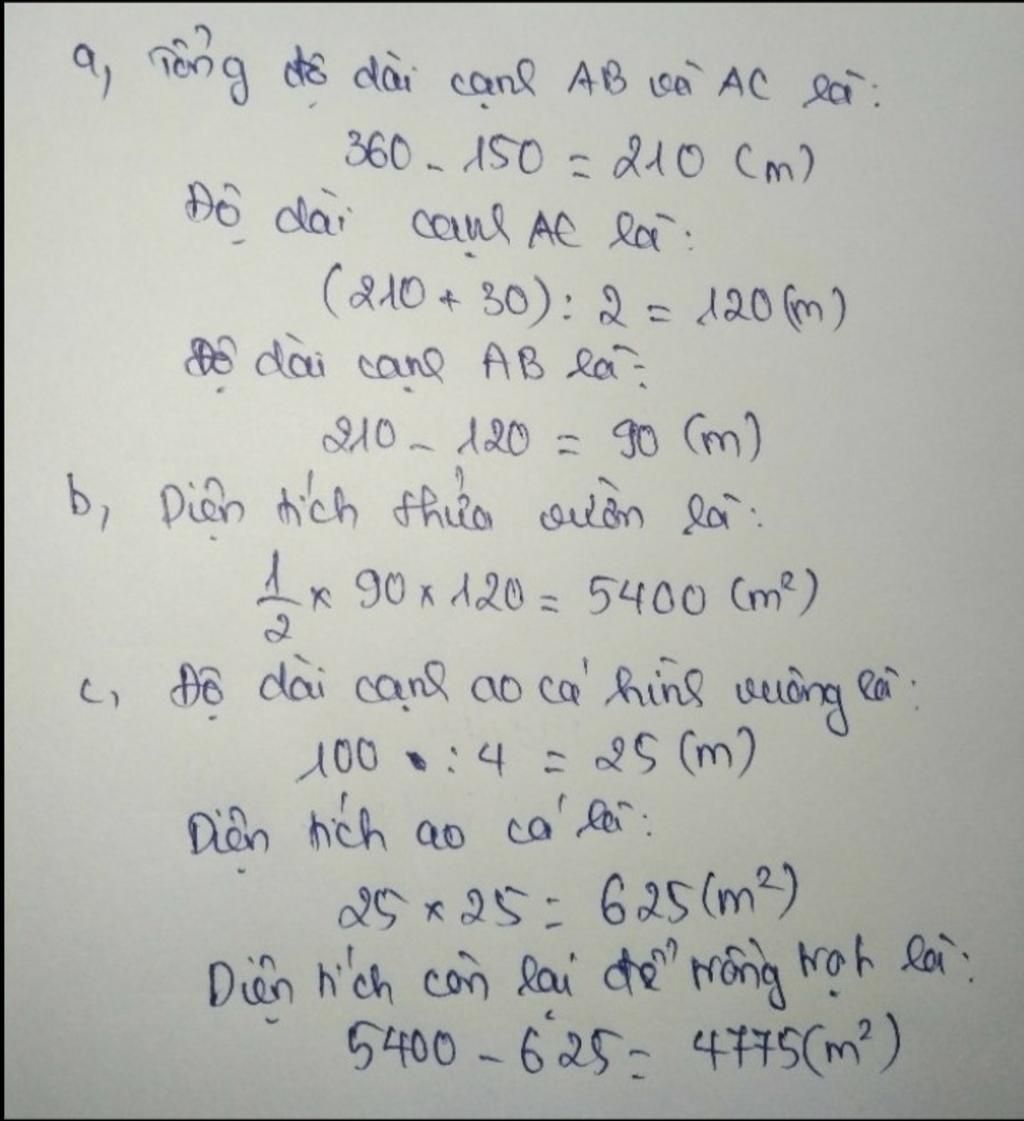 a, Tổng độ dài cạnh AB và AC là:
360 - 150 = 210 (m)
Độ dài cạnh AC là:
(210 + 30) : 2 = 120 (m)
Độ dài cạnh AB là:
210 - 120 = 90 (m)
b, Diện tích thửa vườn là:
1/2 × 90 × 120 = 5400 (m²)
c, Độ dài cạnh ao cá hình vuông là:
100 : 4 = 25 (m)
Diện tích ao cá là:
25 × 25 = 625 (m²)
Diện tích còn lại để trồng trọt là:
5400 - 625 = 4775 (m²)